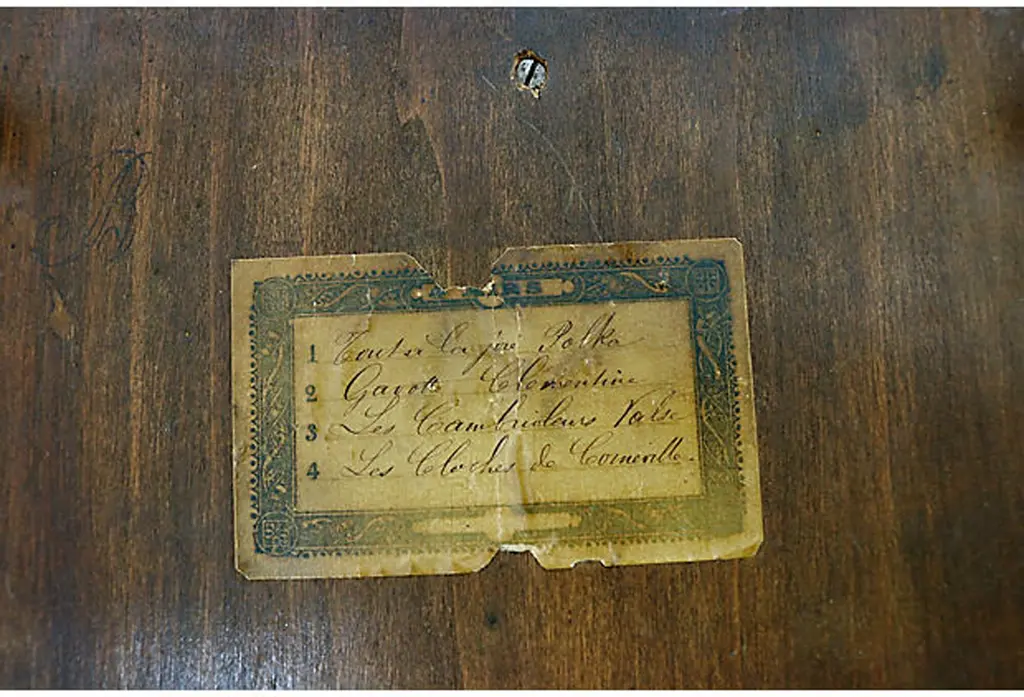 AIRS
1 Toute la joie Polka
2 Gavotte Clémentine
3 Les Cambrioleurs Valse
4 Les Cloches de Corneville.